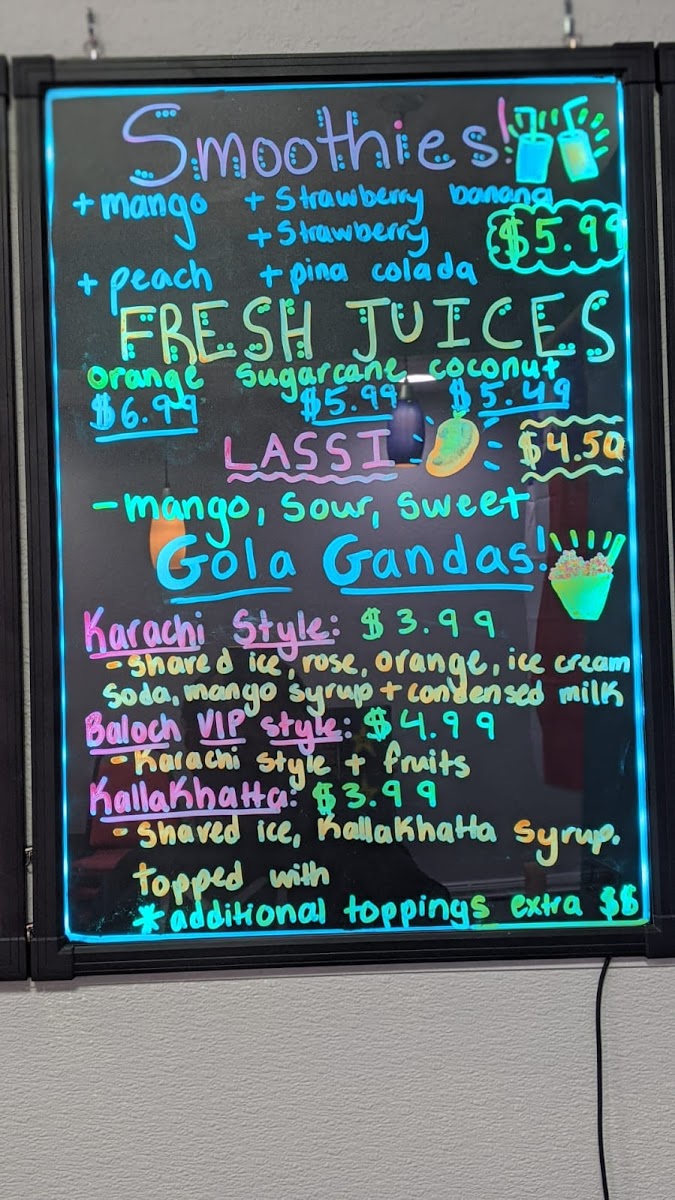 Smoothies!
+ mango + Strawberry banana
+ Strawberry $5.99
+ peach + pina colada
FRESH JUICES
orange sugarcane coconut
$6.99 $5.99 $5.49
LASSI $4.50
- mango, sour, sweet
Gola Gandas!
Karachi Style: $3.99
- Shaved ice, rose, orange, ice cream
Soda, mango syrup + condensed milk
Baloch VIP style: $4.99
- Karachi style + fruits
KallaKhatta: $3.99
- Shaved ice, KallaKhatta syrup.
topped with
*additional toppings extra $$